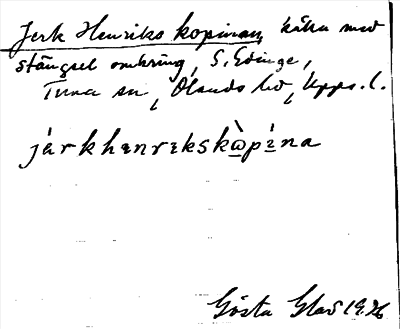 Jerk Henriks kopinan, källa med
stängsel omkring, S. Edinge,
Tuna sn, Olands hd, Upps. l.
järkhenrikskòpína
Gösta Glad 1926